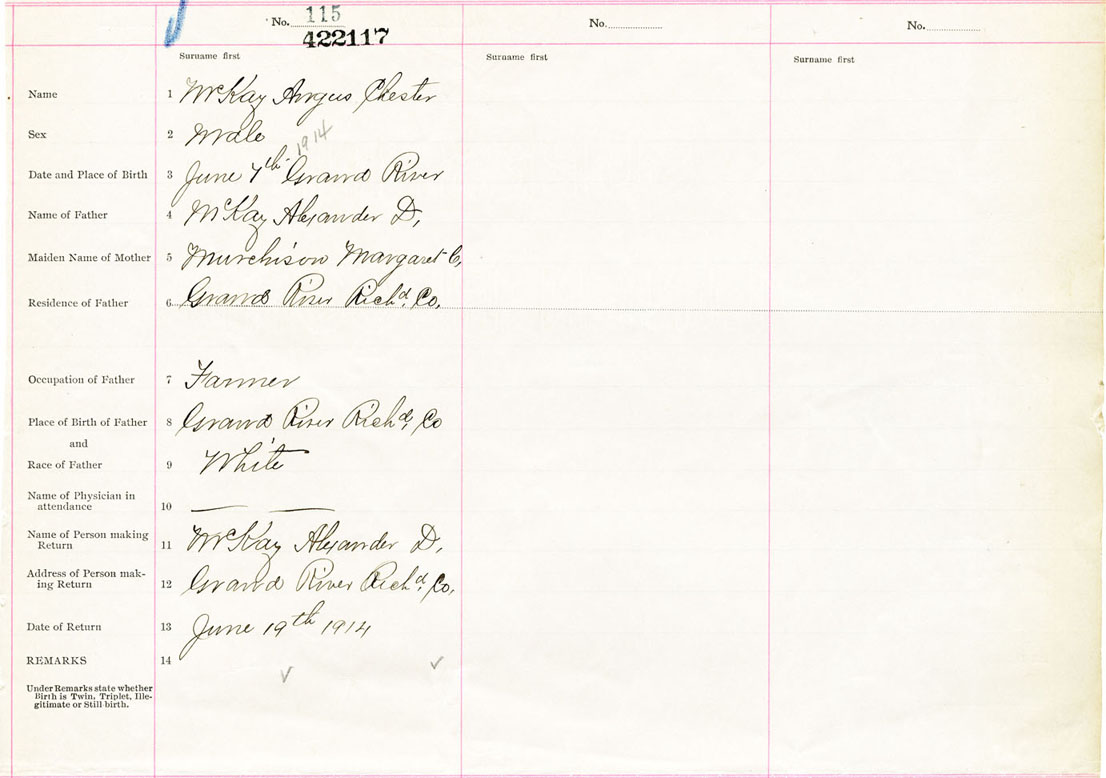 No. 115 No. No.
422117
Surname first Surname first Surname first
Name 1 McKay Angus Chester
Sex 2 Male
1914
Date and Place of Birth 3 June 7th Grand River
Name of Father 4 McKay Alexander D,
Maiden Name of Mother 5 Murchison Margaret C,
Residence of Father 6 Grand River Richd, Co,
Occupation of Father 7 Farmer
Place of Birth of Father 8 Grand River Richd, Co
and
Race of Father 9 White
Name of Physician in
attendance 10 — —
Name of Person making
Return 11 McKay Alexander D,
Address of Person mak-
ing Return 12 Grand River Richd, Co,
Date of Return 13 June 19th 1914
REMARKS 14
Under Remarks state whether
Birth is Twin, Triplet, Ille-
gitimate or Still-birth.